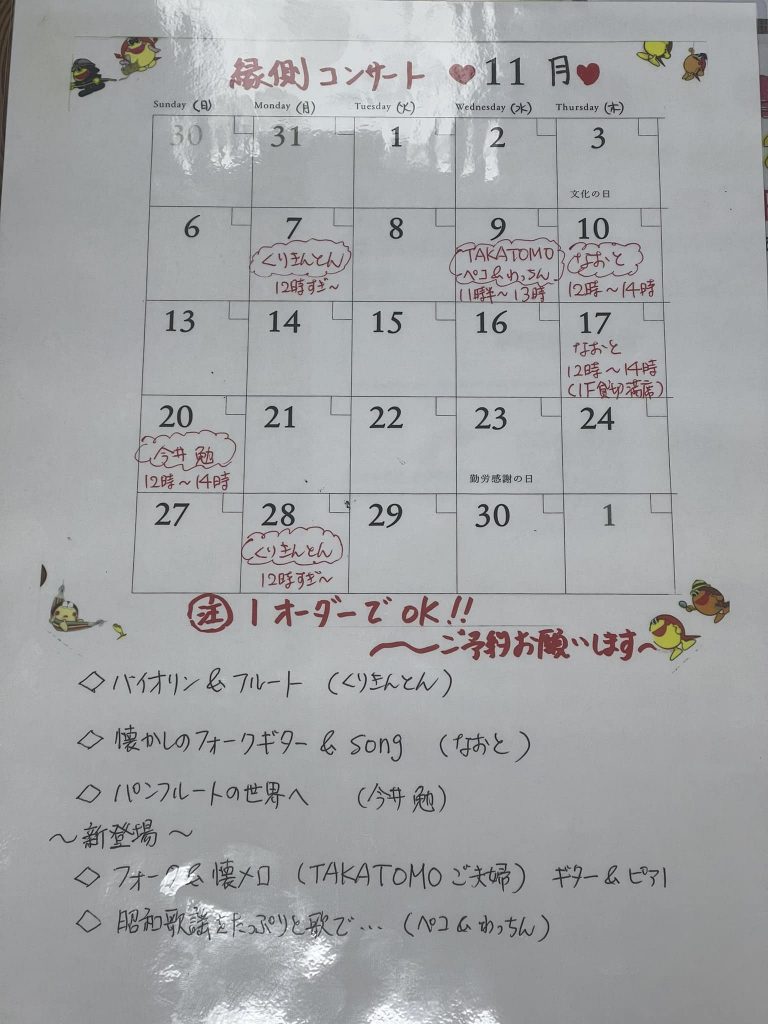 縁側コンサート ♥ 11 月 ♥
Sunday (日) Monday (月) Tuesday (火) Wednesday (水) Thursday (木)
30 31 1 2 3
文化の日
6 7 8 9 10
くりきんとん TAKATOMO なおと
ペコ&わっちん
12時すぎ〜 11時半〜13時 12時〜14時
13 14 15 16 17
なおと
12時〜14時
(1F貸切満席)
20 21 22 23 24
今井 勉
12時〜14時 勤労感謝の日
27 28 29 30 1
くりきんとん
12時すぎ〜
注 1オーダーでOK!!
〜ご予約お願いします〜
◇ バイオリン & フルート (くりきんとん)
◇ 懐かしのフォークギター & song (なおと)
◇ パンフルートの世界へ (今井 勉)
〜新登場〜
◇ フォーク&懐メロ (TAKATOMOご夫婦) ギター&ピアノ
◇ 昭和歌謡をたっぷりと歌で… (ペコ&わっちん)